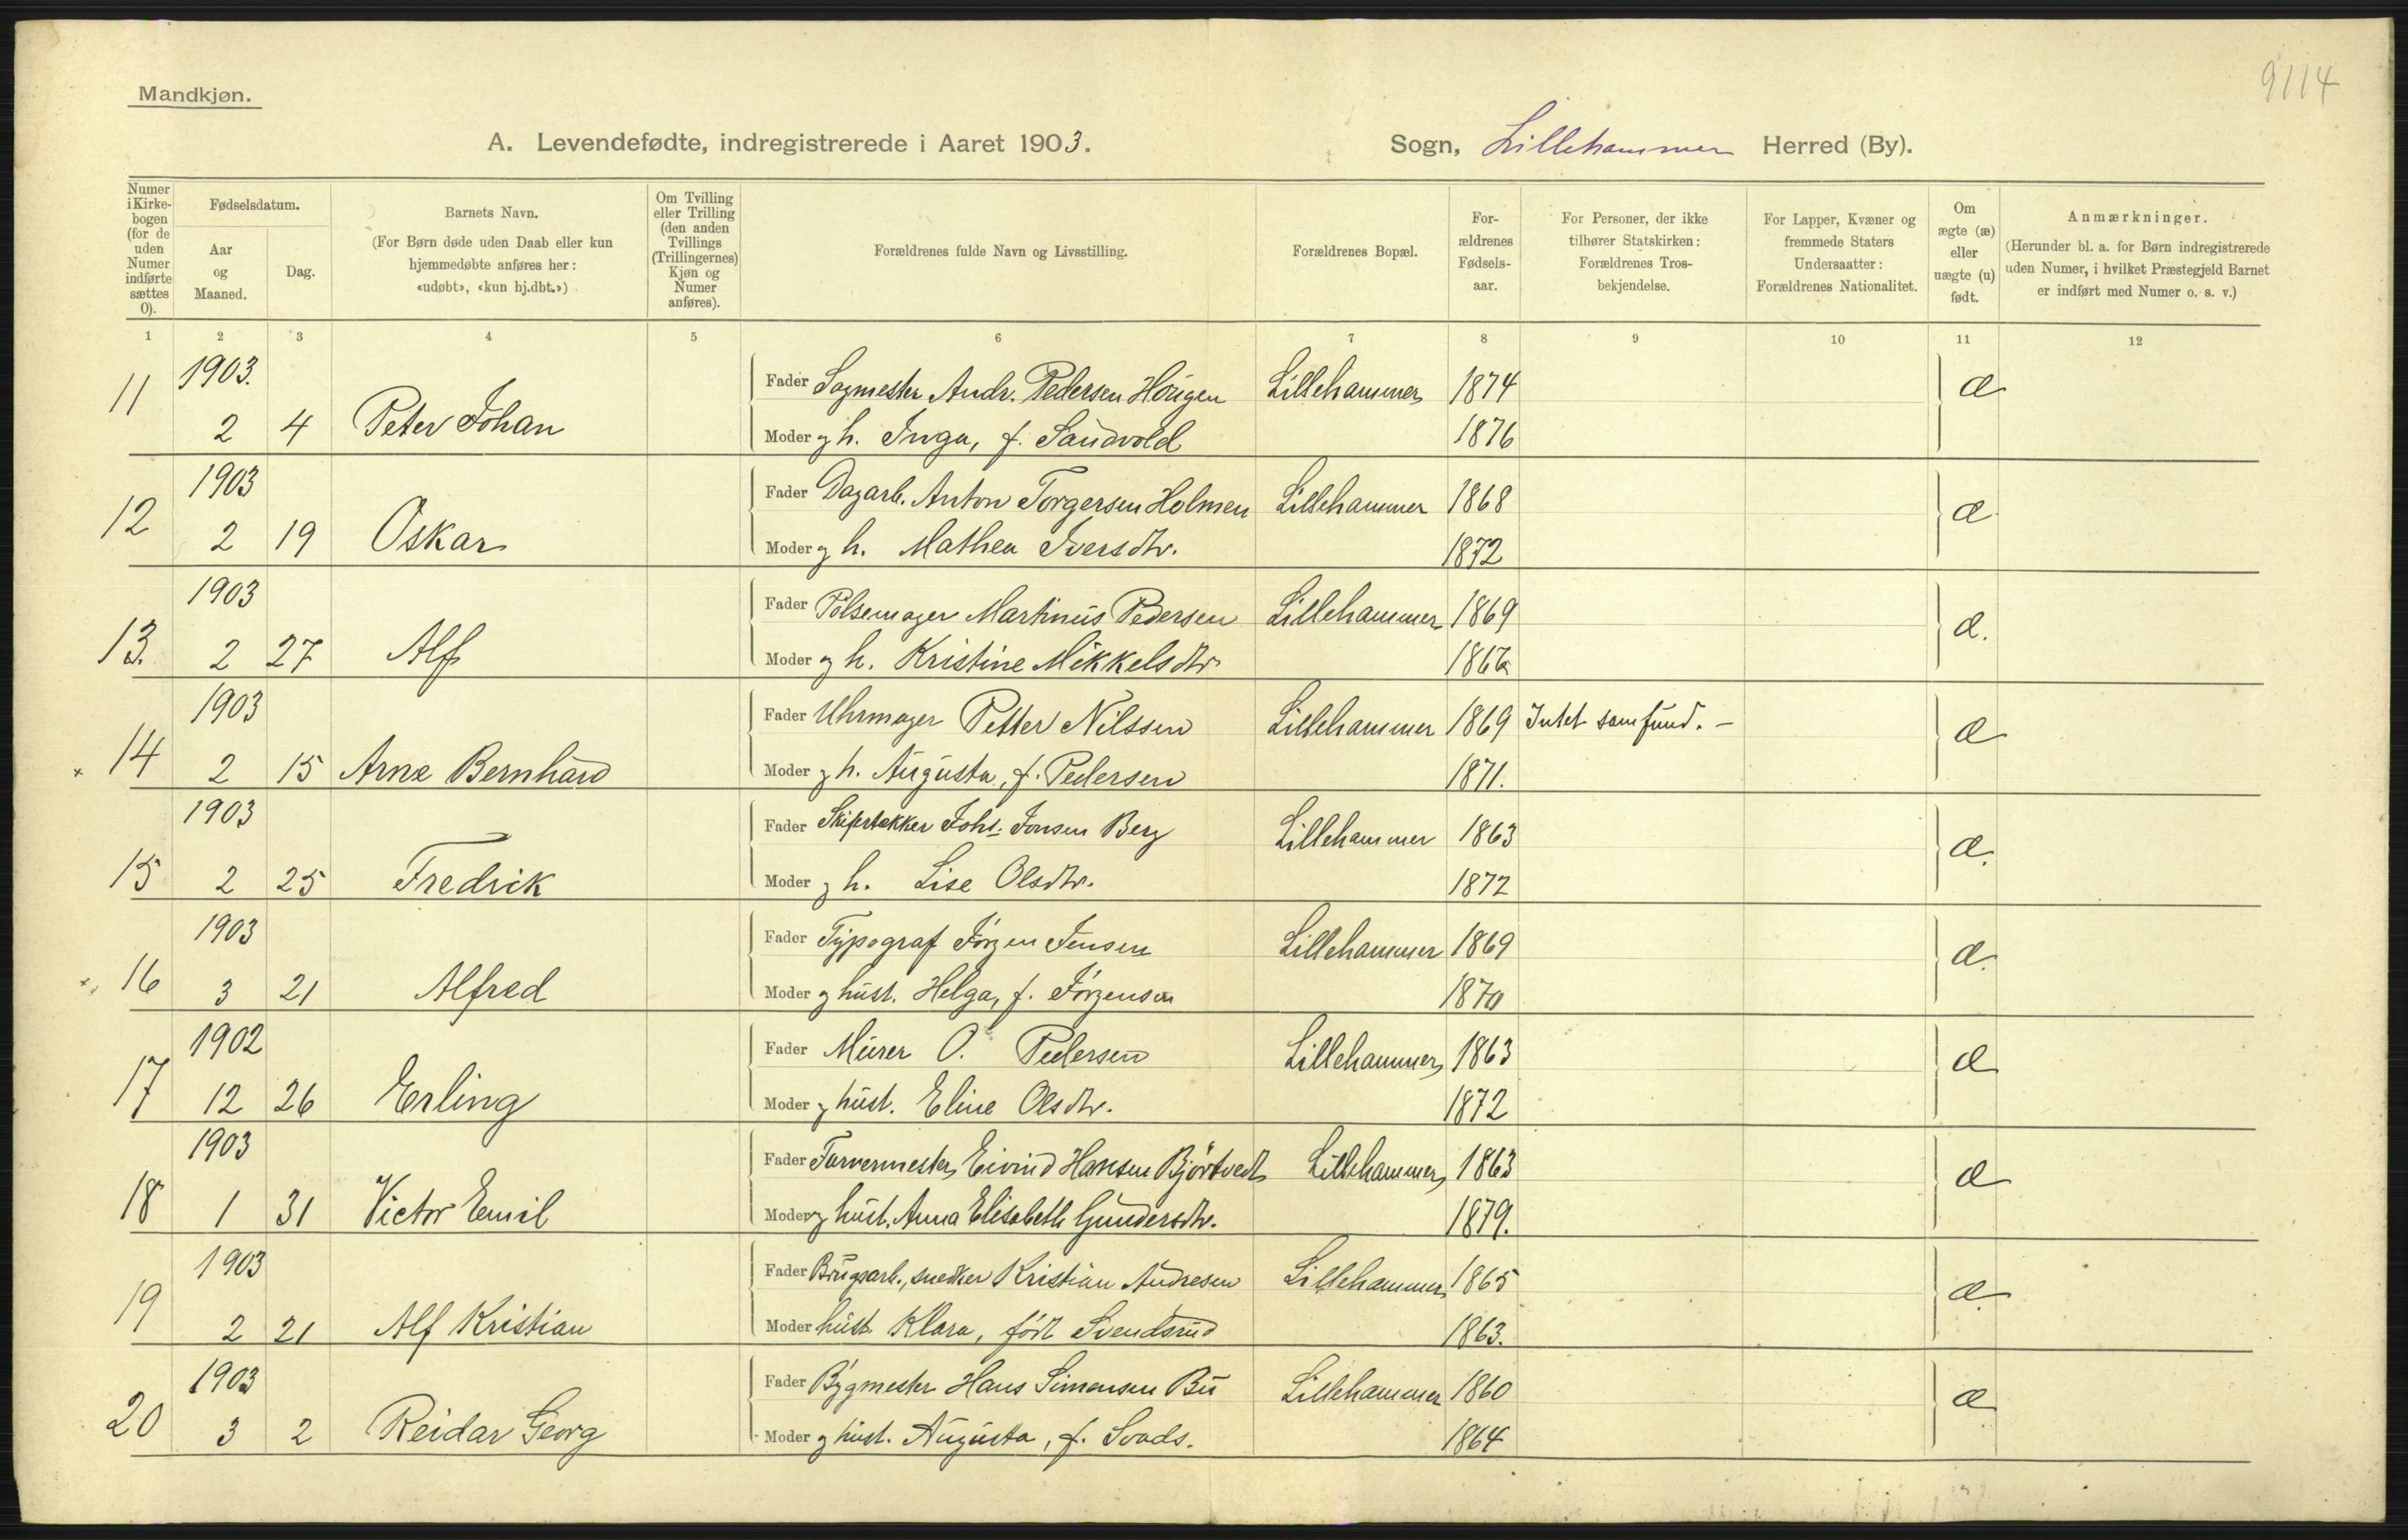 9114
Mandkjøn.
A. Levendefødte, indregistrerede i Aaret 1903. Sogn, Lillehammer Herred (By).
Numer i Kirke-bogen (for de uden Numer indførte sættes 0).
Fødselsdatum.
Aar og Maaned.
Dag.
Barnets Navn.
(For Børn døde uden Daab eller kun hjemmedøbte anføres her: «udøbt», «kun hj.dbt.»)
Om Tvilling eller Trilling (den anden Tvillings (Trillingernes) Kjøn og Numer anføres).
Forældrenes fulde Navn og Livsstilling.
Forældrenes Bopæl.
For-ældrenes Fødsels-aar.
For Personer, der ikke tilhører Statskirken: Forældrenes Tros-bekjendelse.
For Lapper, Kvæner og fremmede Staters Undersaatter: Forældrenes Nationalitet.
Om ægte (æ) eller uægte (u) født.
Anmærkninger.
(Herunder bl. a. for Børn indregistrerede uden Numer, i hvilket Præstegjeld Barnet er indført med Numer o. s. v.)
1 2 3 4 5 6 7 8 9 10 11 12
11 1903. Fader Sagmester Andr. Pedersen Hougen Lillehammer 1874 æ
2 4 Peter Johan Moder og h. Inga, f. Sandvold 1876
12 1903 Fader Dagarb. Anton Torgersen Holmen Lillehammer 1868 æ
2 19 Oskar Moder og h. Mathea Iversdtr. 1872
13. 1903 Fader Pølsemager Martinus Pedersen Lillehammer 1869 æ.
2 27 Alf Moder og h. Kristine Mikkelsdtr
14 1903 Fader Uhrmager Petter Nilssen Lillehammer 1869 Intet samfund. – æ
2 15 Arne Bernhard Moder og h. Augusta, f. Pedersen 1871.
15 1903 Fader Johs. Jonsen Berg Lillehammer 1863 æ.
2 25 Fredrik Moder og h. Lise Olsdtr. 1872
16 1903 Fader Typograf Jørgen Jensen Lillehammer 1869 æ.
3 21 Alfred Moder og hust. Helga, f. Jørgensen 1870
17 1902 Fader Murer O. Pedersen Lillehammer 1863 æ
12 26 Erling Moder og hust. Eline Olsdtr. 1872
18 1903 Fader Farvermester Eivind Hansen Bjørtvedt Lillehammer 1863 æ
1 31 Victor Emil Moder og hust. Anna Elisabeth Gundersdtr. 1879.
19 1903 Fader Brugsarb., snedker Kristian Andresen Lillehammer 1865 æ.
2 21 Alf Kristian Moder hust. Klara, født Svendsrud 1863.
20 1903 Fader Bygmester Hans Simensen Bu Lillehammer 1860 æ
3 2 Reidar Georg Moder og hust. Augusta, f. Svads. 1864